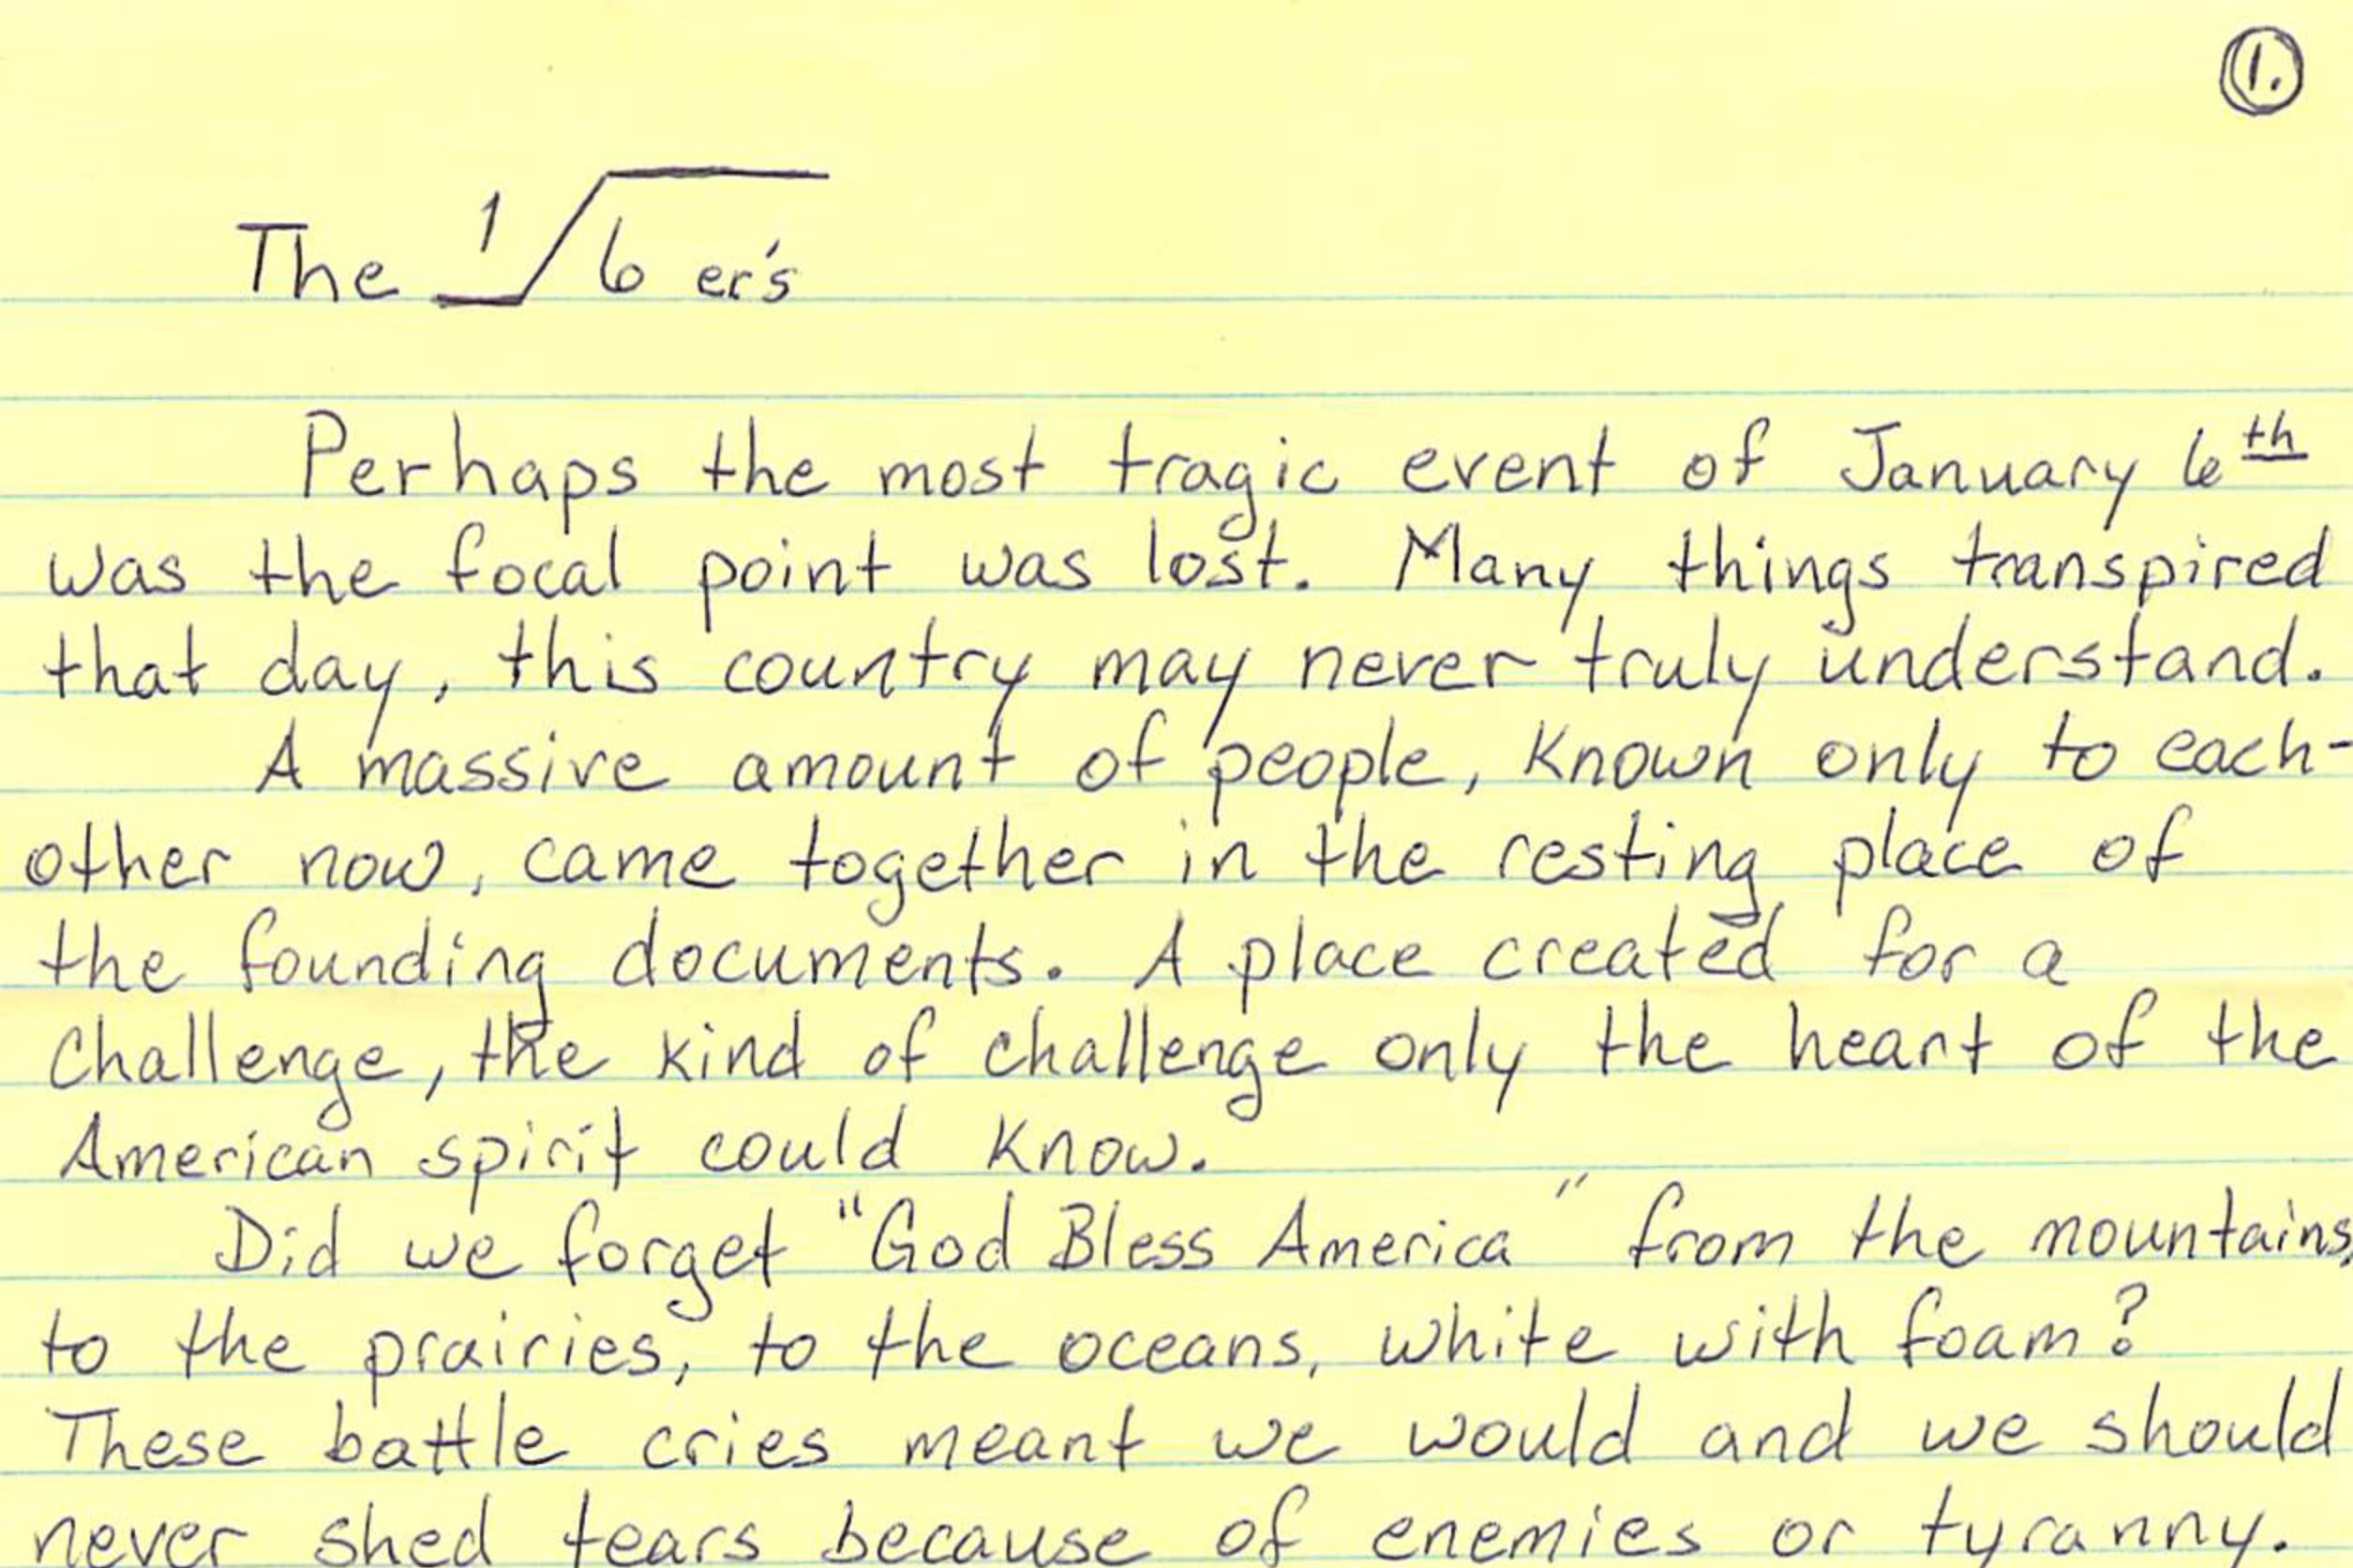 1.
The 1/6 er's
Perhaps the most tragic event of January 6th
was the focal point was lost. Many things transpired
that day, this country may never truly understand.
A massive amount of people, known only to each-
other now, came together in the resting place of
the founding documents. A place created for a
Challenge, the kind of challenge only the heart of the
American spirit could know.
Did we forget "God Bless America" from the mountains,
to the prairies, to the oceans, white with foam?
These battle cries meant we would and we should
never shed tears because of enemies or tyranny.